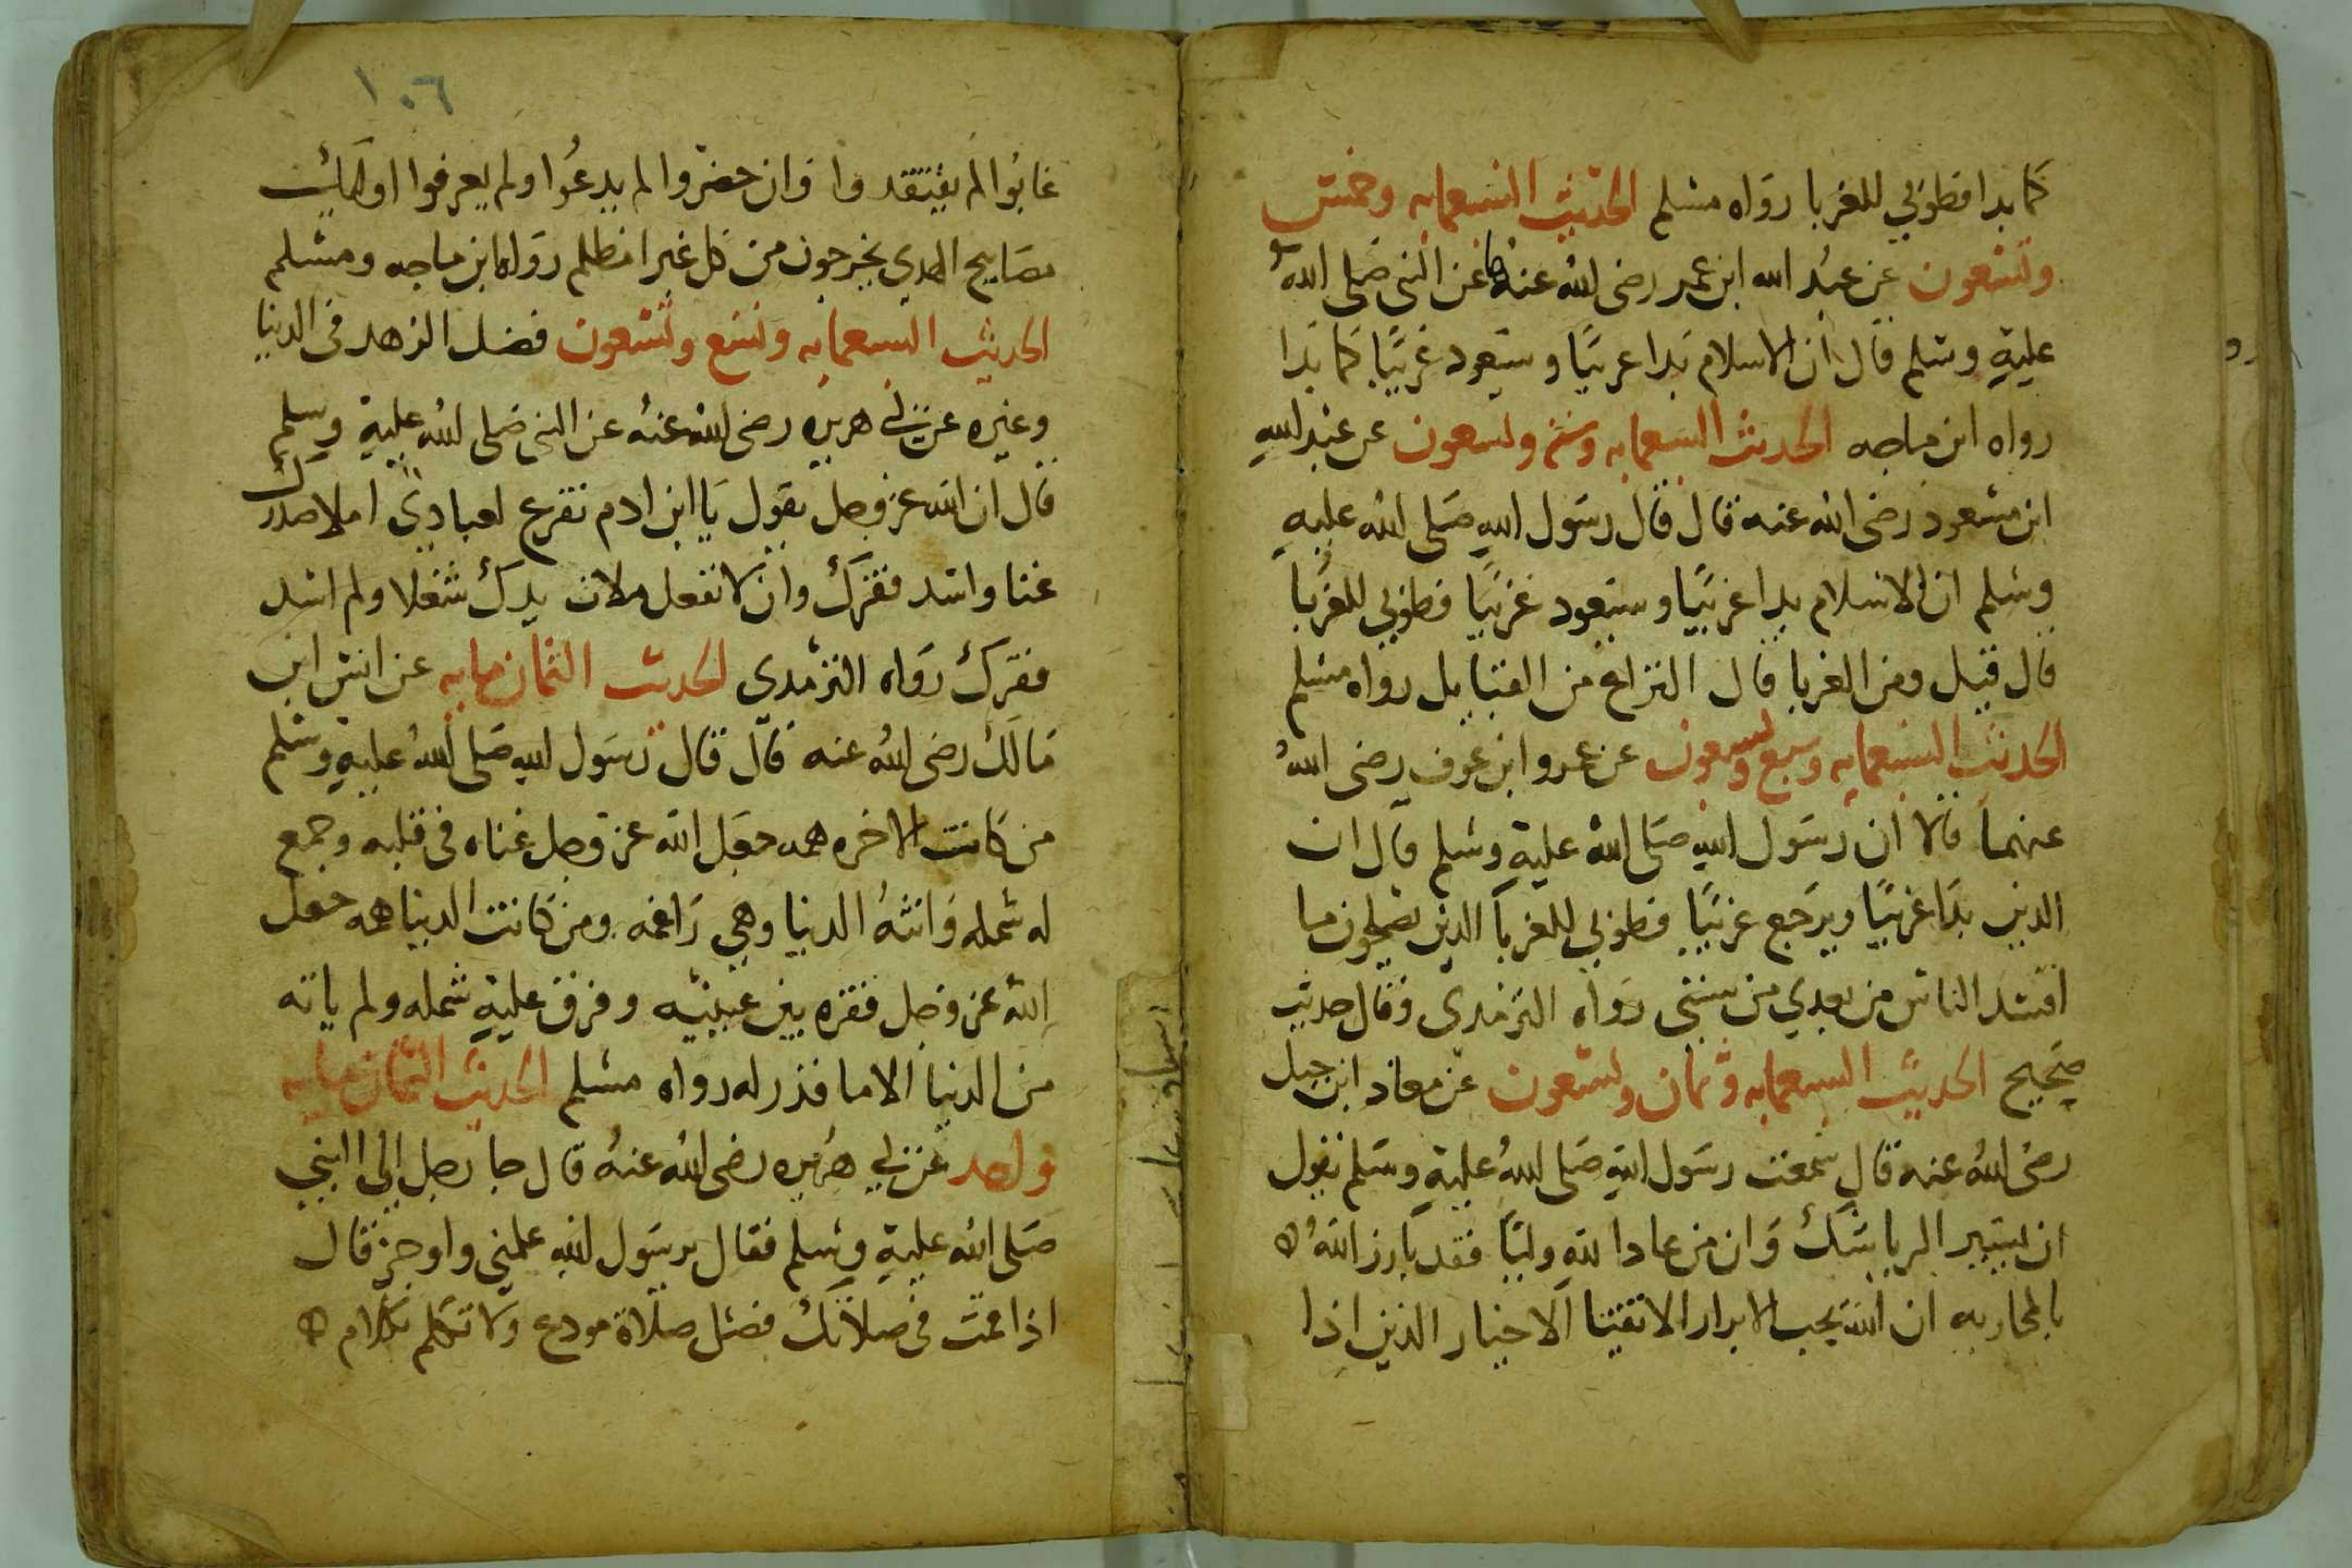 كما بدا فطوبي للغربا رواه مسلم الحديث التسعمايه وخمس
وتسعون عن عبد الله ابن عمر رضى الله عنهما عن النبى صلى الله
عليه وسلم قال ان الاسلام بدا غريبًا وستعود غريبًا كما بدا
رواه ابن ماجه الحديث التسعمايه وست وتسعون عن عبد الله
ابن مسعود رضى الله عنه قال قال رسول الله صلى الله عليه
وسلم ان الاسلام بدا غريبًا وستعود غريبًا فطوبي للغربا
قال قيل ومن الغربا قال النزاع من القبايل رواه مسلم
الحديث التسعمايه وسبع وتسعون عن عمرو ابن عوف رضى الله
عنهما قالا ان رسول الله صلى الله عليه وسلم قال ان
الدين بدا غريبًا ويرجع غريبًا فطوبي للغربا الذين يصلحون ما
افسد الناس من بعدي من سنتى رواه الترمذى وقال حديث
صحيح الحديث التسعمايه وثمان وتسعون عن معاذ ابن جبل
رضى الله عنه قال سمعت رسول الله صلى الله عليه وسلم يقول
ان يسير الريا شك وان من عادا لله وليًا فقد بارز الله
بالمحاربه ان الله يحب الابرار الاتقيا الاخيار الذين اذا
١٠٦
غابوا لم يفتقدوا وان حضروا لم يدعوا ولم يعرفوا اوليك
مصابيح الهدي يخرجون من كل غبرا مظلم رواه ابن ماجه ومسلم
الحديث التسعمايه وتسع وتسعون فضل الزهد فى الدنيا
وغيره عن ابي هريره رضى الله عنه عن النبى صلى الله عليه وسلم
قال ان الله عز وجل يقول يا ابن ادم تفرغ لعبادتي املا صدرك
غنا واسد فقرك وان لا تفعل ملات يدك شغلا ولم اسد
فقرك رواه الترمدي الحديث الثمان مايه عن انس ابن
مالك رضى الله عنه قال قال رسول الله صلى الله عليه وسلم
من كانت الاخره همه جعل الله عز وجل غناه فى قلبه وجمع
له شمله واتته الدنيا وهي راغمه ومن كانت الدنيا همه جعل
الله عز وجل فقره بين عينيه وفرق عليه شمله ولم ياته
من الدنيا الا ما قدر له رواه مسلم الحديث الثمان مايه
وواحد عن ابي هريره رضى الله عنه قال جا رجل الى النبي
صلى الله عليه وسلم فقال يرسول الله علمني واوجز قال
اذا قمت فى صلاتك فصل صلاة مودع ولا تكلم بكلام